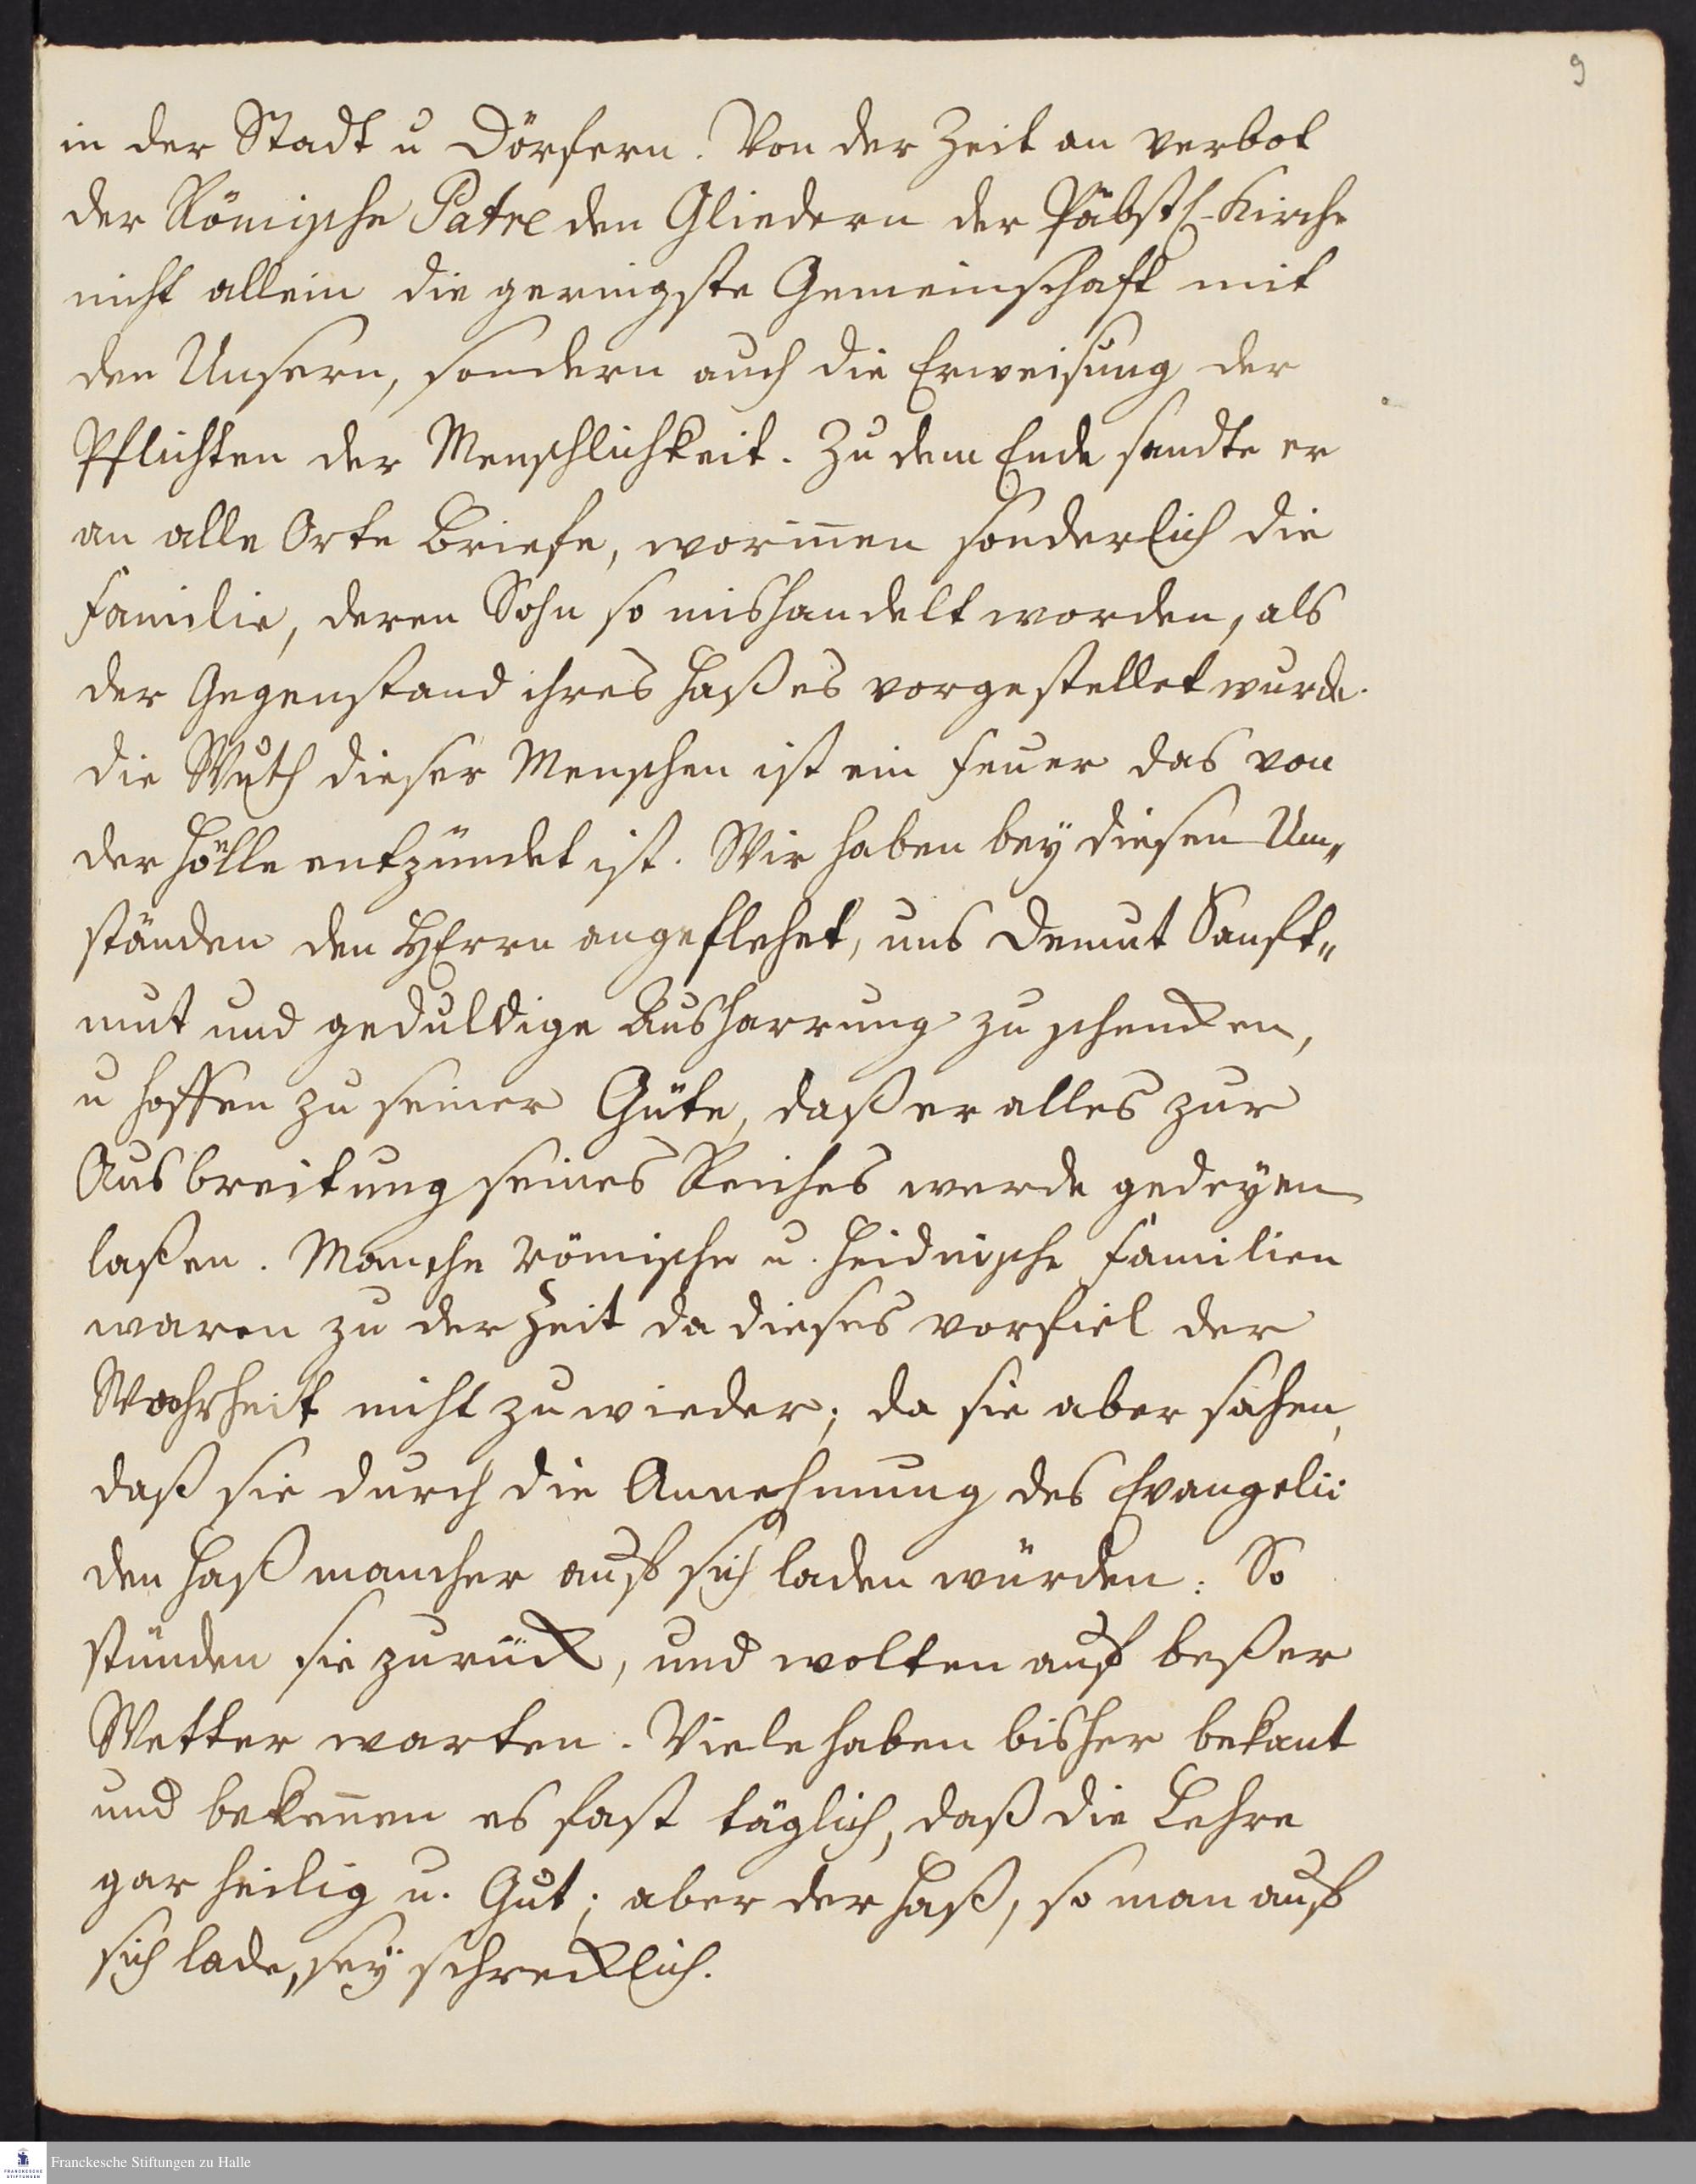 9
in der Stadt u Dörfern. Von der Zeit an verbot
der Römische Patre den Gliedern der Päbstl. Kirche
nicht allein die geringste Gemeinschaft mit
den Unsern, sondern auch die Erweisung der
Pflichten der Menschlichkeit. Zu dem Ende sandte er
an alle Orte Briefe, worin̄en sonderlich die
Familie, deren Sohn so mishandelt worden, als
der Gegenstand ihres Haßes vorgestellet wurde.
die Wuth dieser Menschen ist ein Feuer das von
der Hölle entzündet ist. Wir haben bey diesen Um„
ständen den HErrn angeflehet, uns Demut Sanft„
mut und geduldige Ausharrung zu schencken,
u hoffen zu seiner Güte, daß er alles zur
Ausbreitung seines Reiches werde gedeyen
laßen. Manche Römische u. Heidnische Familien
waren zu der Zeit da dieses vorfiel der
Wahrheit nicht zuwieder; da sie aber sahen,
daß sie durch die Annehmung des Evangelii
den Haß mancher auf sich laden würden: So
stünden sie zurück, und wolten auf beßer
Wetter warten. Viele haben bisher bekant
und beken̄en es fast täglich, daß die Lehre
gar heilig u. Gut; aber der Haß, so man auf
sich lade, sey schrecklich.
FRANCKESCHE STIFTUNGEN
Franckesche Stiftungen zu Halle